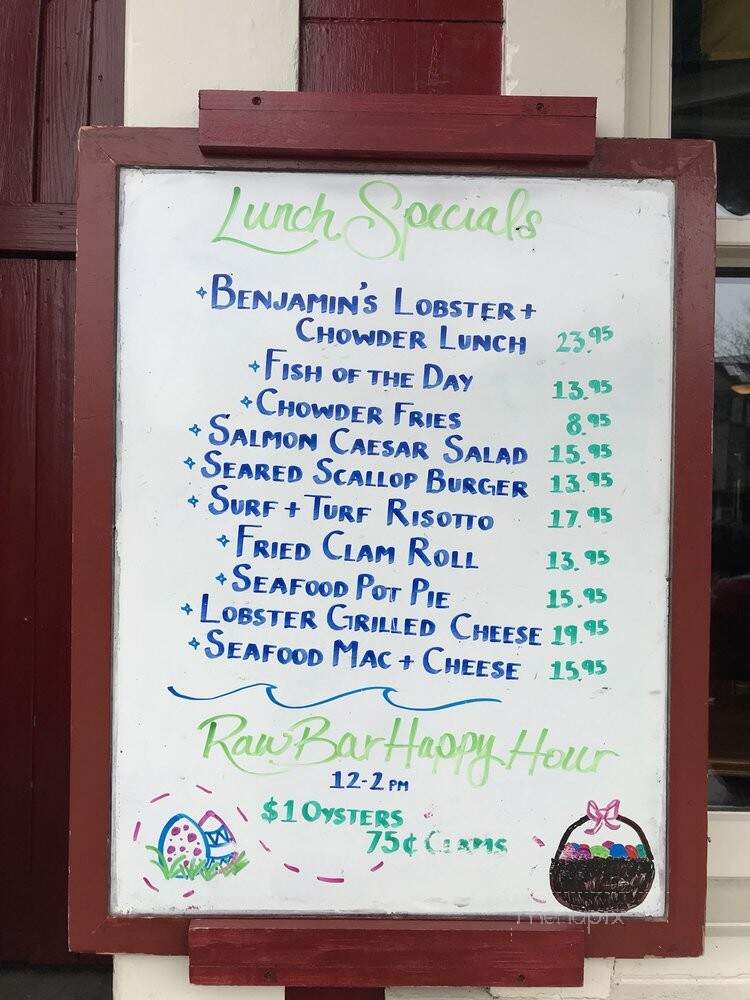 Lunch Specials
Benjamin's Lobster +
Chowder Lunch 23.95
Fish of the Day 13.95
Chowder Fries 8.95
Salmon Caesar Salad 15.95
Seared Scallop Burger 13.95
Surf + Turf Risotto 17.95
Fried Clam Roll 13.95
Seafood Pot Pie 15.95
Lobster Grilled Cheese 19.95
Seafood Mac + Cheese 15.95
Raw Bar Happy Hour
12-2 PM
$1 Oysters
75¢ Clams
menupix